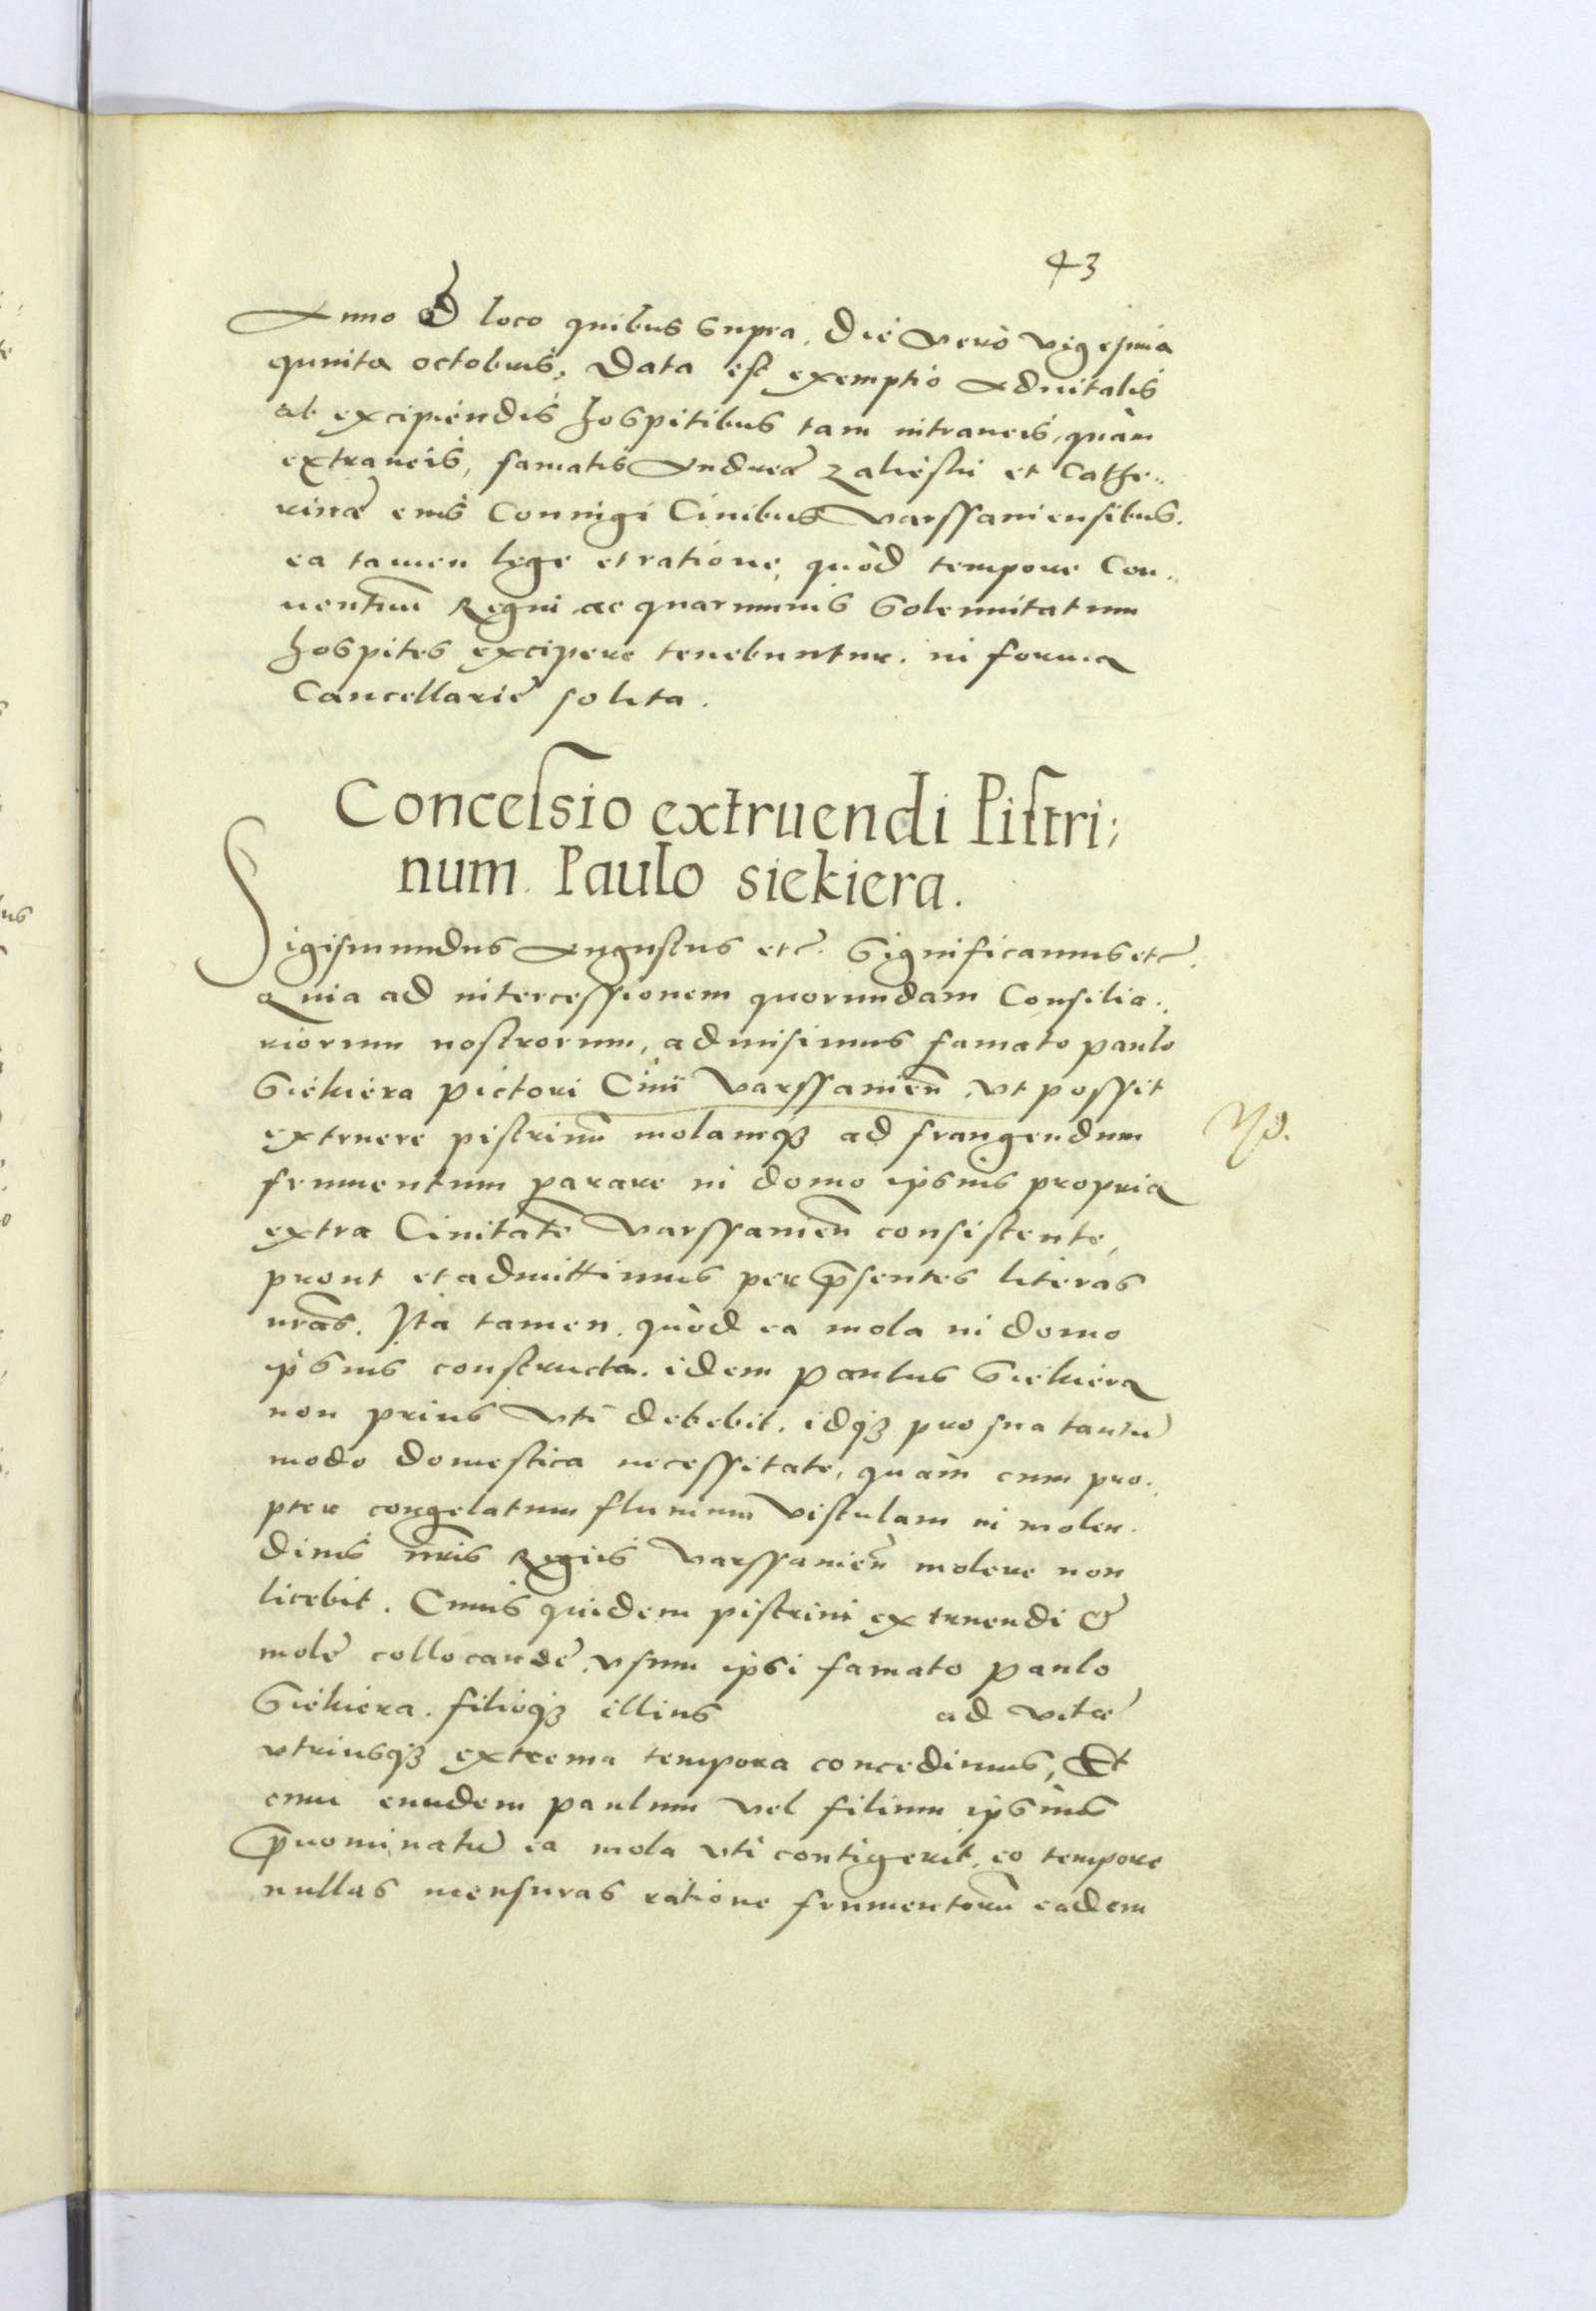 43
Anno & loco quibus supra. Die vero vigesima
quinta octobris, Data est exemptio advitalis
ab excipiendis hospitibus tam intraneis, quàm
extraneis, famatis Andreæ Zalieski et Cathe..
rinæ eius Coniugi Civibus Varssaviensibus.
ea tamen lege et ratione, quòd tempore Con..
ventuū Regni ac quarumvis Solennitatum
hospites excipere tenebuntur. in forma
Cancellarie solita.
Concessio extruendi Pistri;
num Paulo siekiera.
Sigismundus Augustus etc. Significamus etc.
Quia ad intercessionem quorundam Consilia..
riorum nostrorum, admisimus famato paulo
Siekiera pictori Civi Varssavieñ. vt possit
extruere pistrinū molamqȝ ad frangendum
frumentum parare in domo ipsius propria
extra Civitatē Varssavieñ consistente,
prout et admittimus per p̄sentes literas
nr̄as. Ita tamen. quòd ea mola in domo
ipsius constructa. idem paulus Siekiera
non prius vti debebit. idqȝ pro sua tantū
modo domestica necessitate, quàm cum pro..
pter congelatum fluvium Vistulam in molen.
dinis nr̄is Regiis Varssavieñ molere non
licebit. Cuius quidem pistrini extruendi &
mole collocande, vsum ipsi famato paulo
Siekiera. filioqȝ illius ad vitæ
vtriusqȝ extrema tempora concedimus, Et
cum eundem paulum vel filium ipsius
p̄nominatū ea mola vti contigerit, eo tempore
nullas mensuras ratione frumentorū eadem